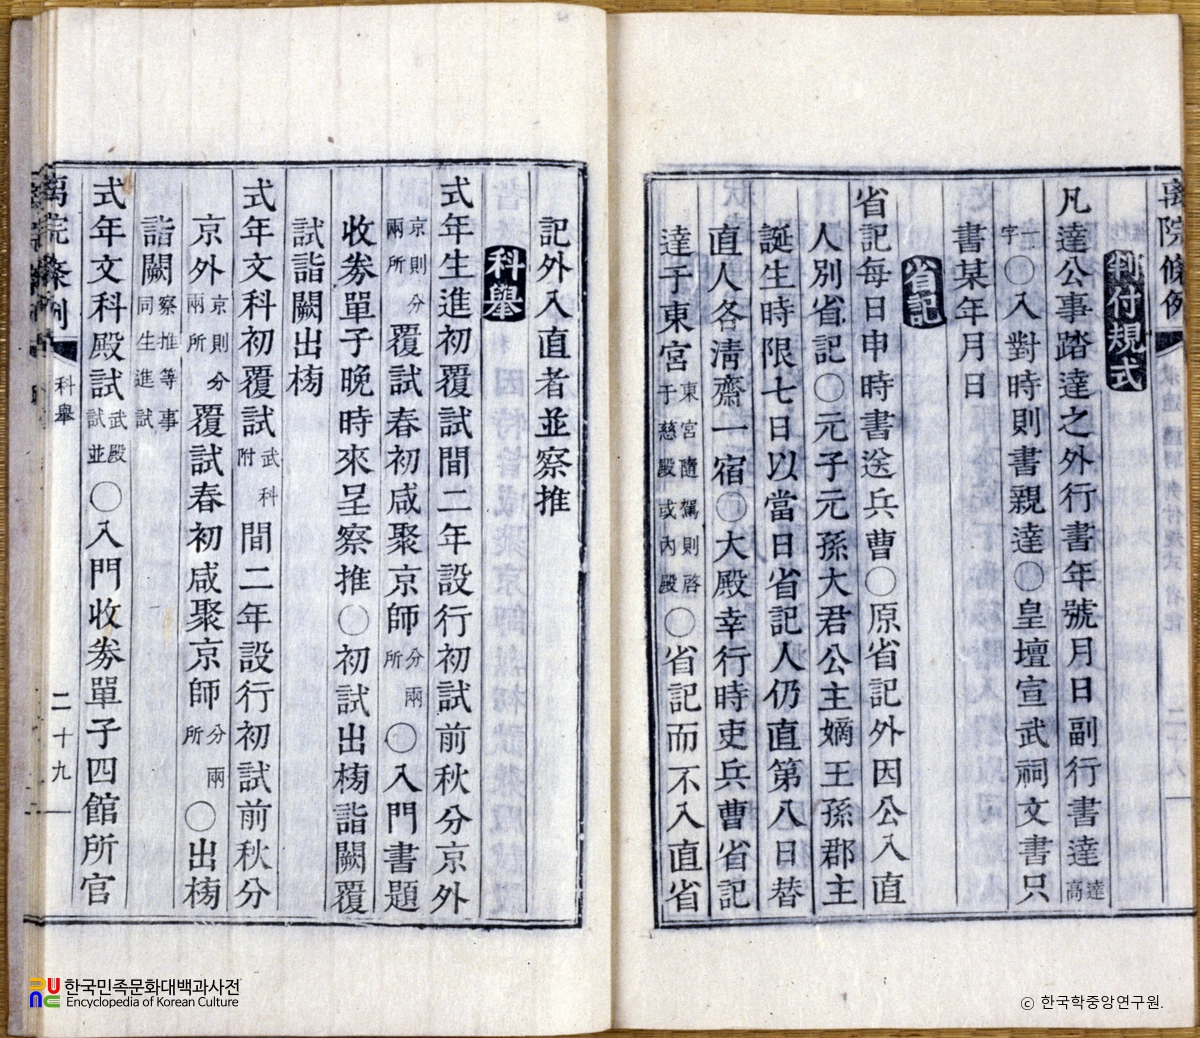 院條例
判付規式
凡達公事踏達之外行書年號月日副行書達達高
一字○入對時則書親達○皇壇宣武祠文書只
書某年月日
省記
省記每日申時書送兵曹○原省記外因公入直
人別省記○元子元孫大君公主嫡王孫郡主
誕生時限七日以當日省記人仍直第八日替
直人各淸齋一宿○大殿幸行時吏兵曹省記
達于東宮東宮隨駕則啓于慈殿或內殿○省記而不入直省
記外入直者並察推
科擧
式年生進初覆試間二年設行初試前秋分京外
京則分兩所覆試春初咸聚京師分兩所○入門書題
收券單子晩時來呈察推○初試出榜詣闕覆
試詣闕出榜
式年文科初覆試武科附間二年設行初試前秋分
京外京則分兩所覆試春初咸聚京師分兩所○出榜
詣闕察推等事同生進試
式年文科殿試武殿試並○入門收券單子四館所官
院條例
科擧
二十九
한국민족문화대백과사전
Encyclopedia of Korean Culture
© 한국학중앙연구원.